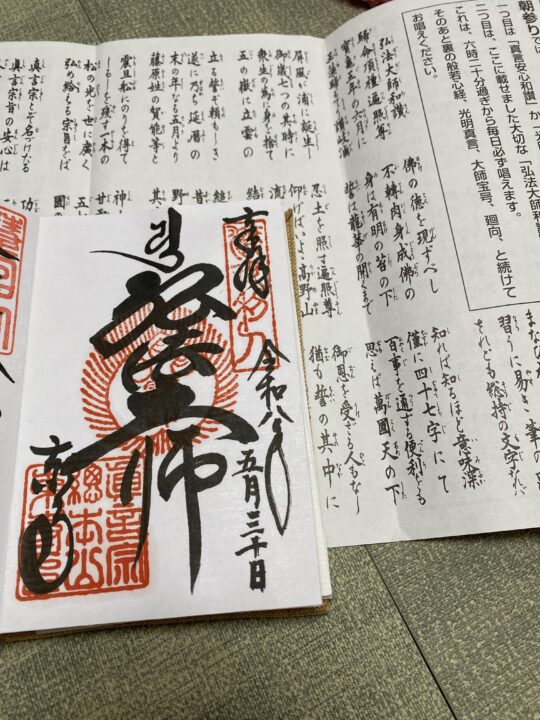 朝参りでは
一つ目は「真言安心和讃」か
二つ目は、ここに載せました大切な「弘法大師和讃
これは、六時二十分過ぎから毎日必ず唱えます。
そのあと裏の般若心経、光明真言、大師宝号、廻向、と続けて
お唱えください。
弘法大師和讃
歸命頂禮遍照尊
寶亀五年の六月に
屏風が浦に誕生し
御齢七つの其時に
衆生の為に身を捨て
五の嶽に立雲の
立る誓ぞ頼もしき
遂に乃ち延暦の
末の年なる五月より
藤原姓の賀能等と
震旦船にのりを得て
しるしを残す一本の
松の光を世に廣く
弘め給える宗旨をば
真言宗とぞ名けたる
真言宗旨の安心は
佛の徳を現ずべし
不轉肉身成佛の
身は有明の苔の下
誓は龍華の開くまで
忍土を照す遍照尊
仰げばいよいよ高野山
習うに易き筆の
されども總持の文字なれ
知れば知るほど意味深
僅に四十七字にて
百事を通ずる便利をも
思えば萬國天の下
御恩を受ざる人もなし
猶も誓の其中に
奉拝
令和八年
五月三十日
弘法大師
東寺
真言宗
總本山